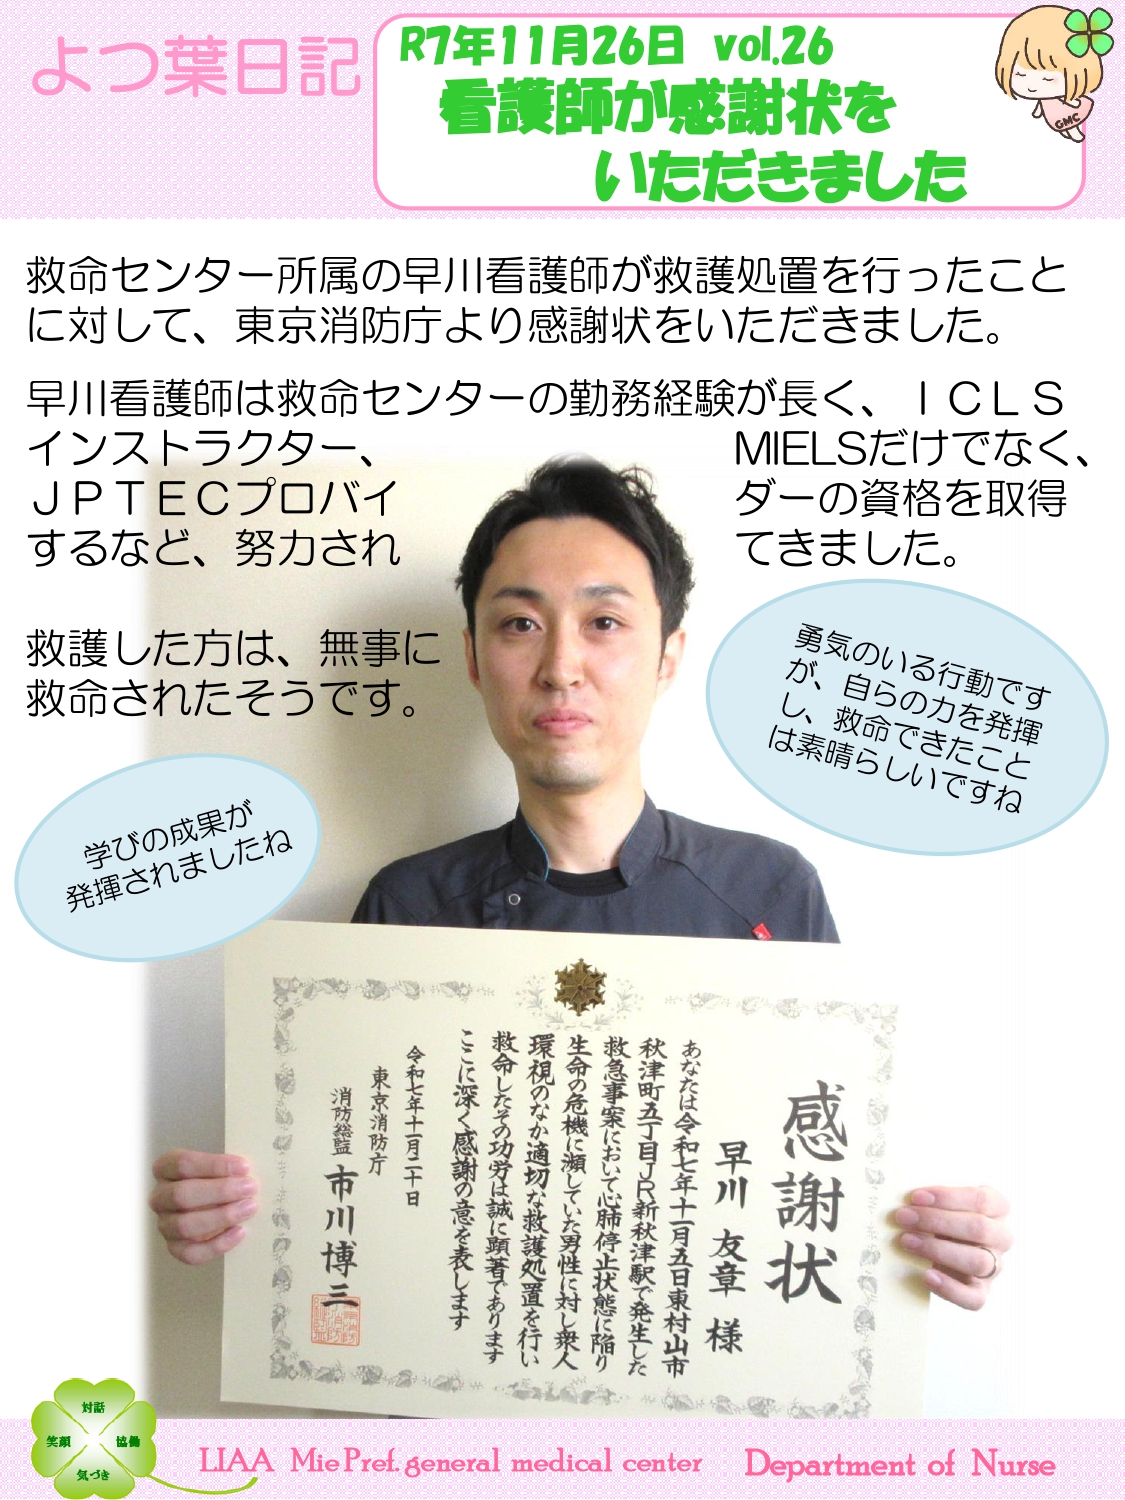 よつ葉日記
R7年11月26日 vol.26
看護師が感謝状を
いただきました
GMC
救命センター所属の早川看護師が救護処置を行ったこと
に対して、東京消防庁より感謝状をいただきました。
早川看護師は救命センターの勤務経験が長く、ＩＣＬＳ
インストラクター、MIELSだけでなく、
ＪＰＴＥＣプロバイダーの資格を取得
するなど、努力されてきました。
救護した方は、無事に
救命されたそうです。
勇気のいる行動です
が、自らの力を発揮
し、救命できたこと
は素晴らしいですね
学びの成果が
発揮されましたね
感謝状
早川 友章 様
あなたは令和七年十一月五日東村山市
秋津町五丁目JR新秋津駅で発生した
救急事案において心肺停止状態に陥り
生命の危機に瀕していた男性に対し衆人
環視のなか適切な救護処置を行い
救命したその功労は誠に顕著であります
ここに深く感謝の意を表します
令和七年十一月二十日
東京消防庁
消防総監 市川博三
対話
笑顔
協働
気づき
LIAA Mie Pref. general medical center Department of Nurse